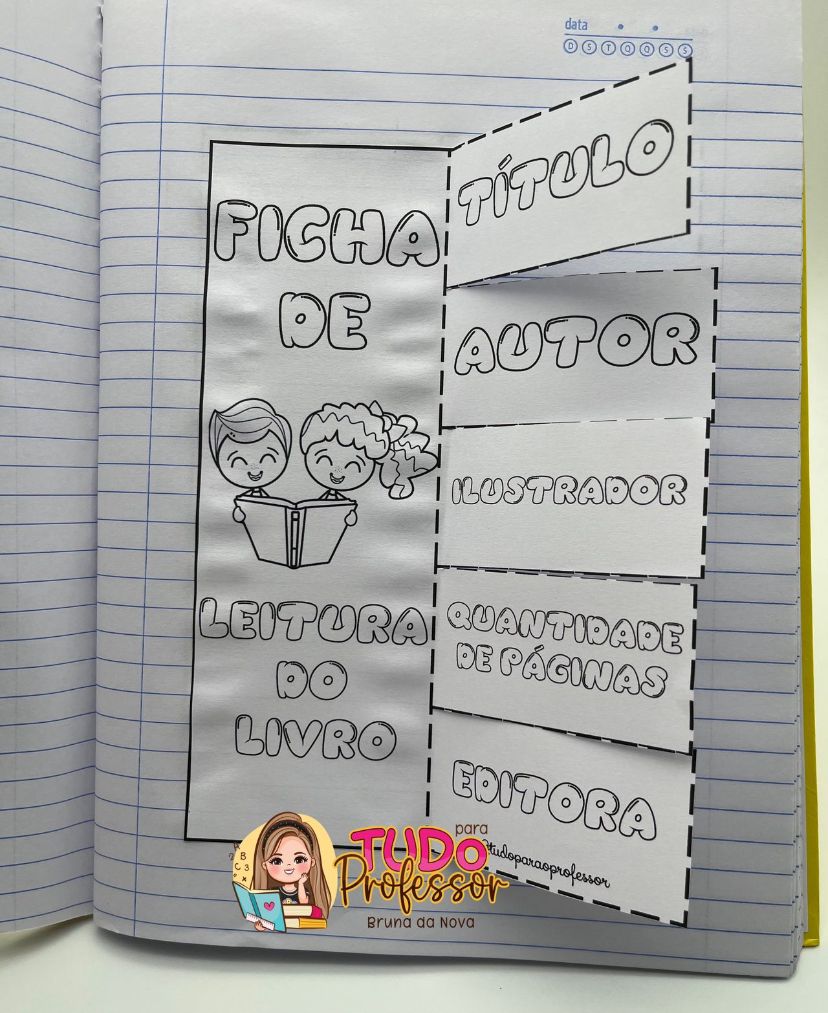 data
D S T Q Q S S
FICHA
DE
LEITURA
DO
LIVRO
TÍTULO
AUTOR
ILUSTRADOR
QUANTIDADE
DE PÁGINAS
EDITORA
tudoparaoprofessor
TUDO para
Professor
Bruna da Nova